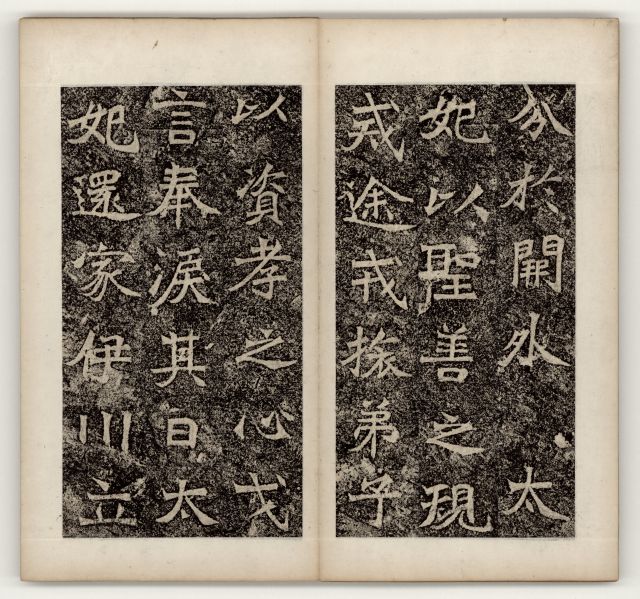 分於開外太
妃以聖善之規
戎途戎旅弟子
以資孝之心戈
言奉淚其日太
妃還家伊川立